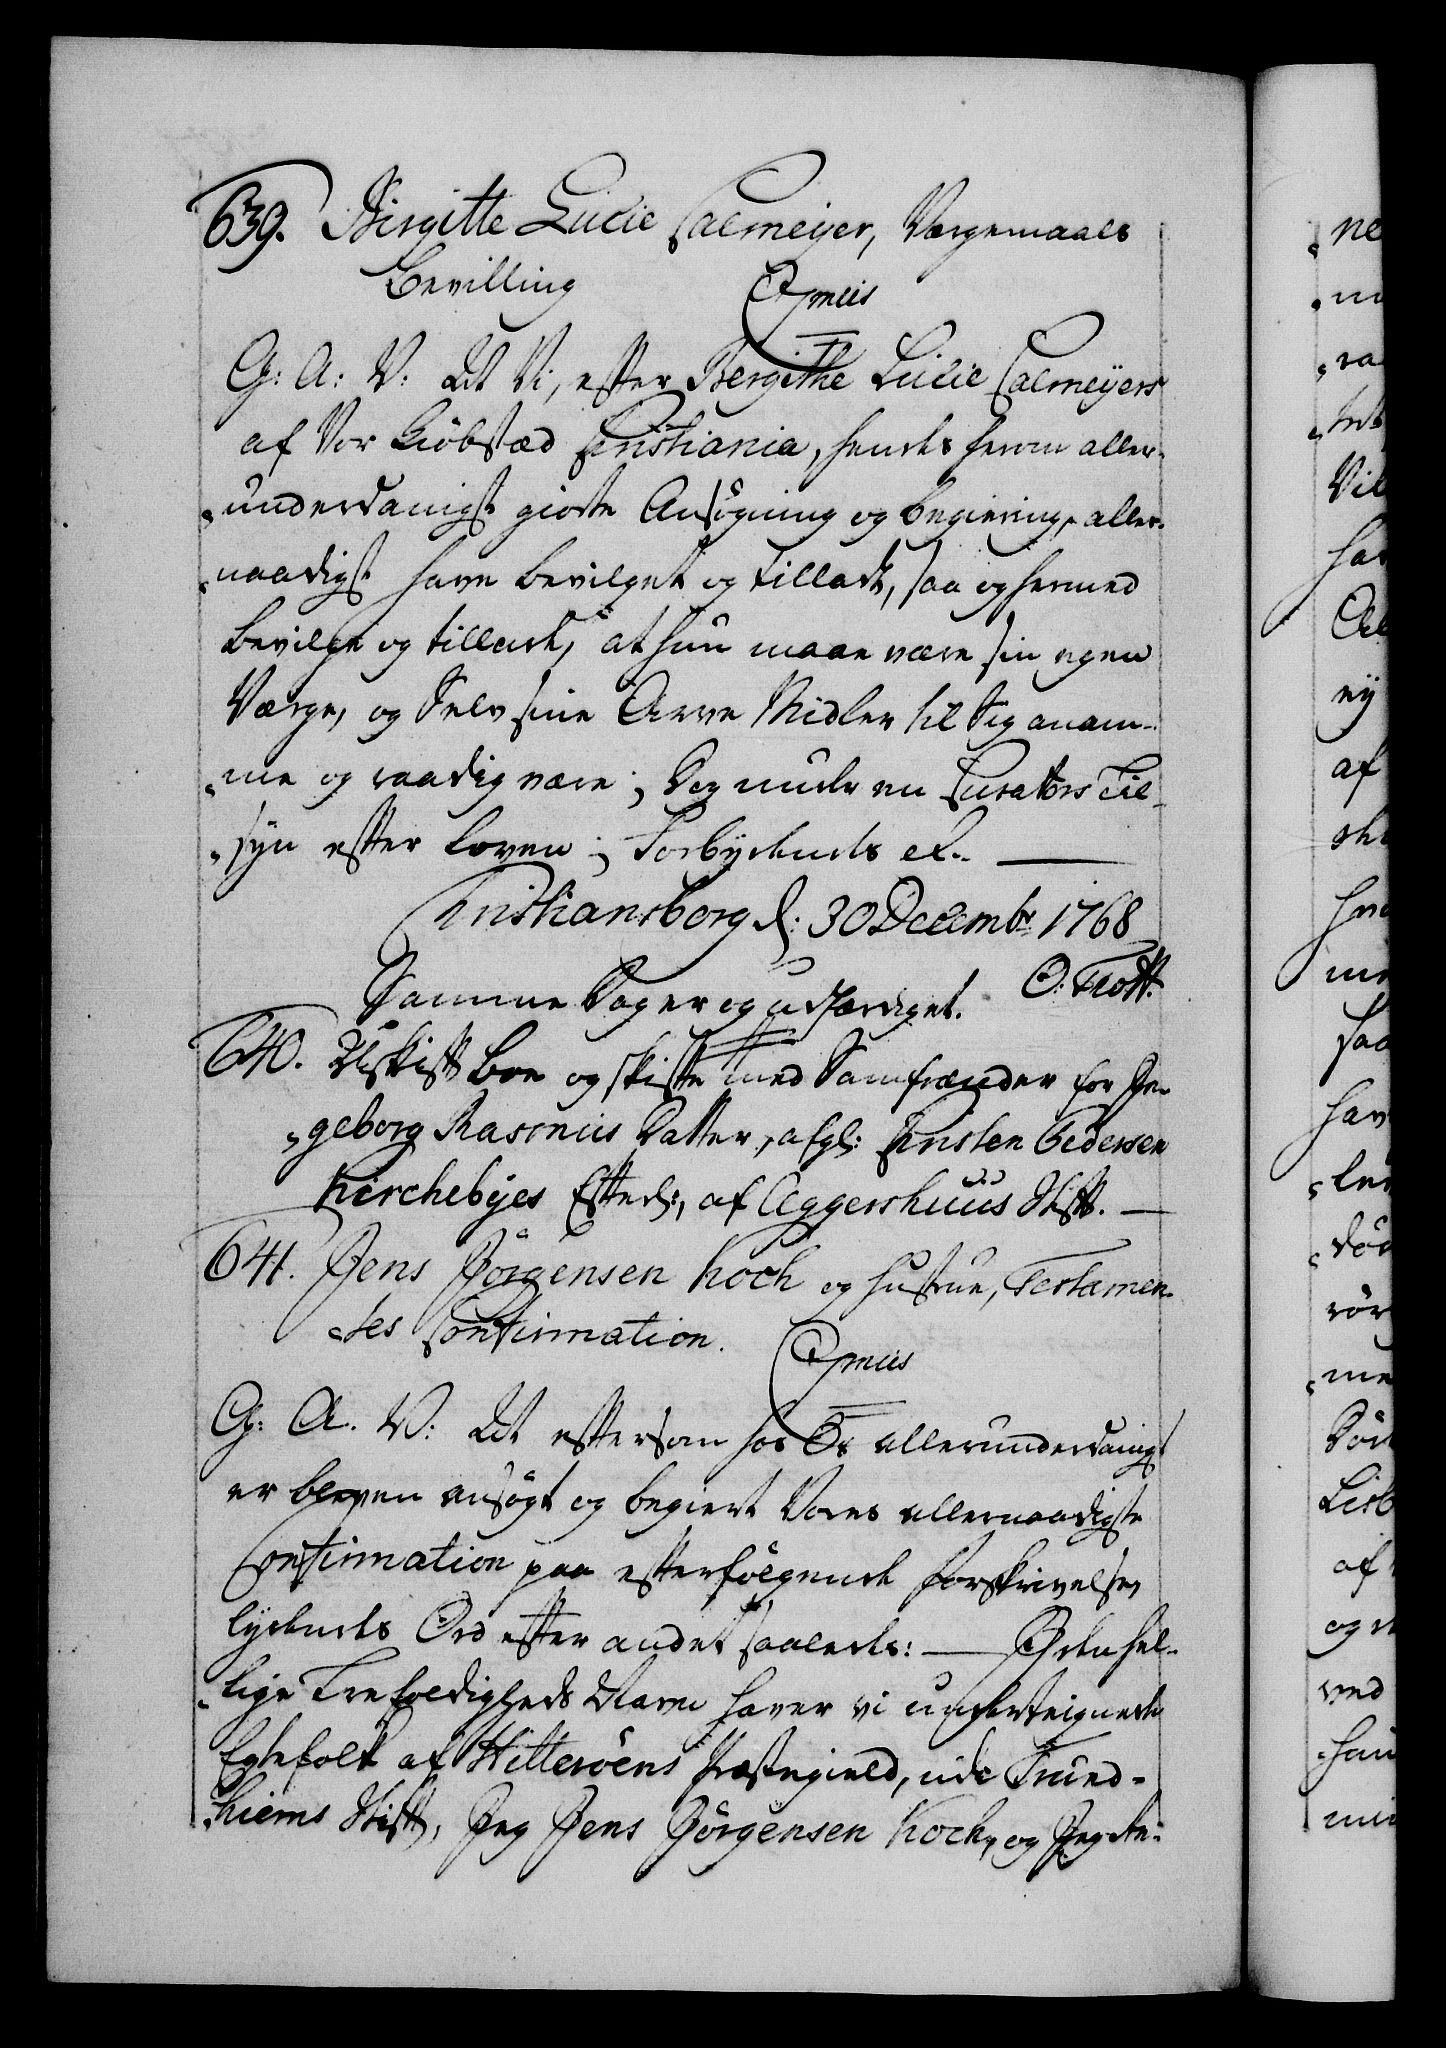 639. Birgitte Lucie Calmeyer, Værgemaals
Bevilling
Qvmiis
G: A: V: At Vi, efter Bergithe Lucie Calmeyers
af Vor Kiöbstæd Christiania, hendes herom aller-
underdanigst giorte Ansögning og begiering, aller-
naadigst have bevilget og tilladt, saa og hermed
bevilge og tillade, at hun maae være sin egen
Værge, og Selv sine Arve Midler til Sig anam-
me og raadig være; Dog under en Curators Til-
syn efter Loven; Forbydendes etc.
Christiansborg d: 30 Decembr 1768
O: Thott.
Samme Dag er og udfærdiget.
640. Uskift Boe og skifte med Samfrænder for In-
geborg Rasmus Datter, afgl: Christen Pedersen
Kirchebyes Efterl:, af Aggershuus Stift.
641. Jens Jörgensen Koch og Hustrue, Testamen-
tes Confirmation.
Qvmiis
G: A. V: At eftersom hos Os allerunderdanigst
er bleven ansögt og begiert Vores allernaadigste
Confirmation paa efterfölgende Forskrivelse,
lydendes Ord efter andet saaledes: I den hel-
lige Trefoldigheds Navn haver vi underteignede
Egtefolk af Hitteröens Præstegield, udi Trund-
hiems Stift, Jeg Jens Jörgensen Koch, og Jeg An-